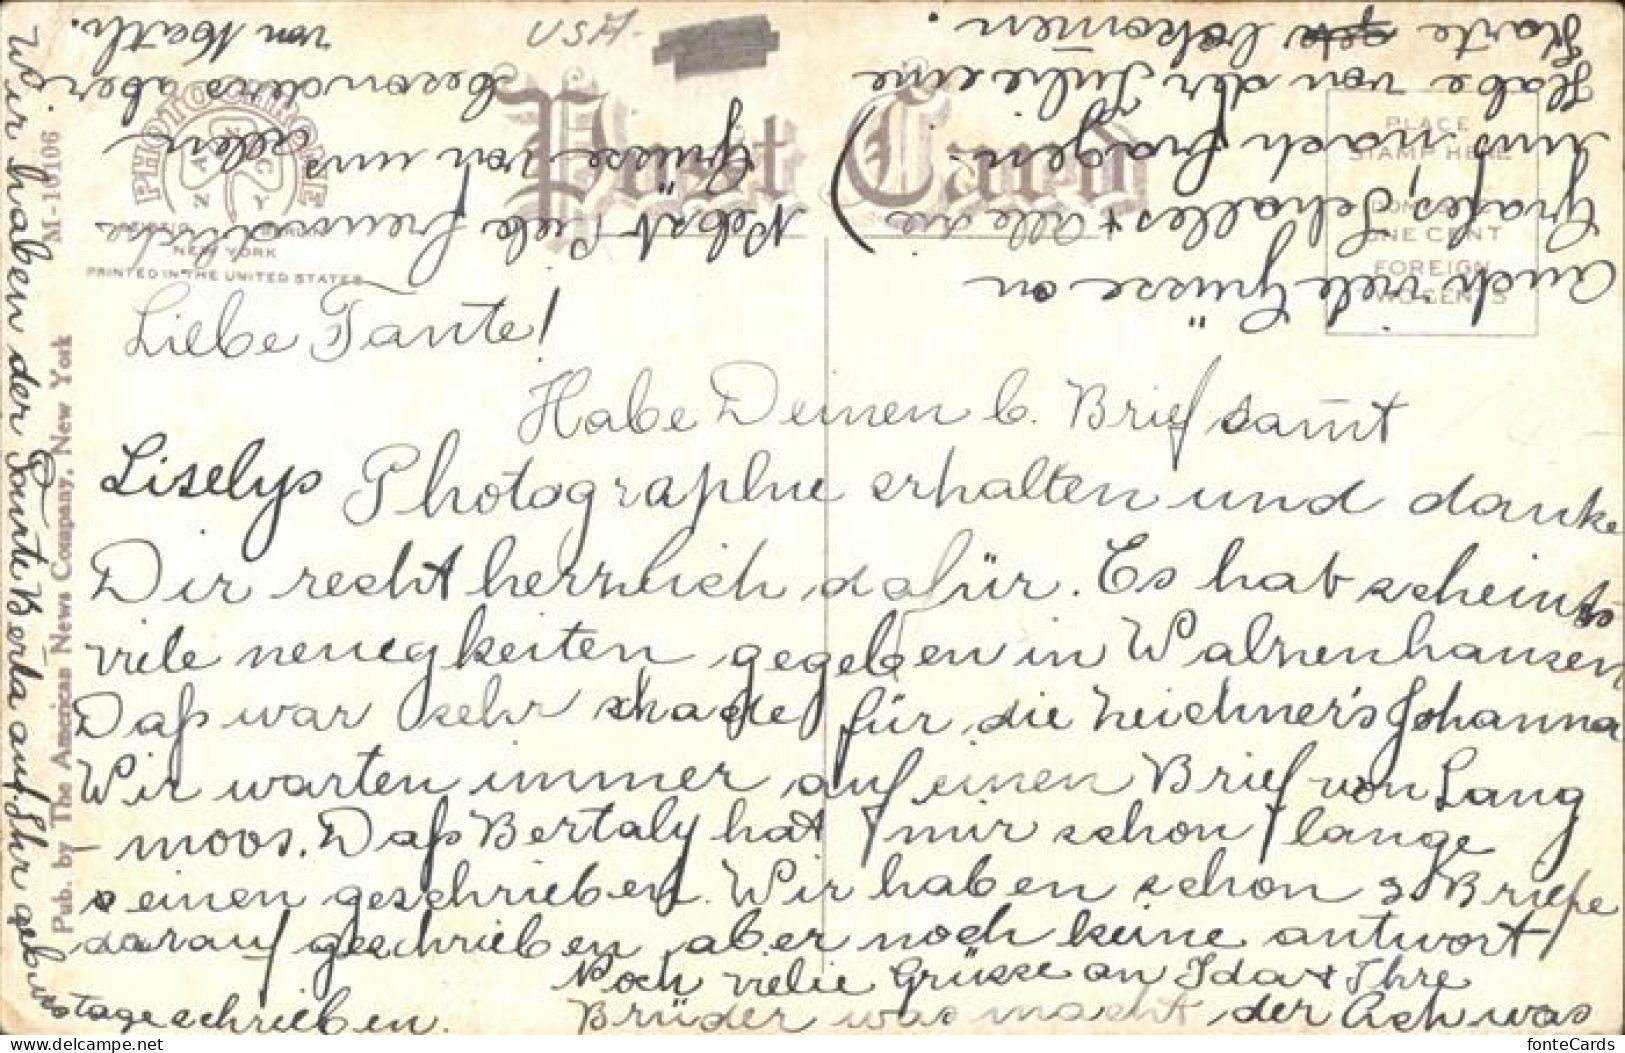 USA.
Post Card
PHOTOCHROME
NEW YORK
PRINTED IN THE UNITED STATES
PLACE
STAMP HERE
ONE CENT
FOREIGN
TWO CENTS
M-10106
Pub. by The American News Company, New York
Liebe Tante!
Habe Deinen l. Brief samt
Liselys Photographie erhalten und danke
Dir recht herzlich dafür. Es hat scheints
viele neuigkeiten gegeben in Walzenhausen
Daß war sehr schade für die Zeichner's Johanna
Wir warten immer auf einen Brief von Lang
moos. Daß Bertaly hat mir schon lange
einen geschrieben. Wir haben schon 3 Briefe
darauf geschrieben, aber noch keine antwort
Noch viele Grüsse an Ida + Ihre
Brüder was macht der Asch was
Wir haben der Tante Berta auf Ihr geburts
tage schrieben.
Auch viele Grüsse an
Grafes, Schalles + alle die
uns nach fragen.)
Habe von der Julie eine
Karte bekomen.
Nebst liebe freundliche
Grüsse von uns allen
besonders aber
von Math.